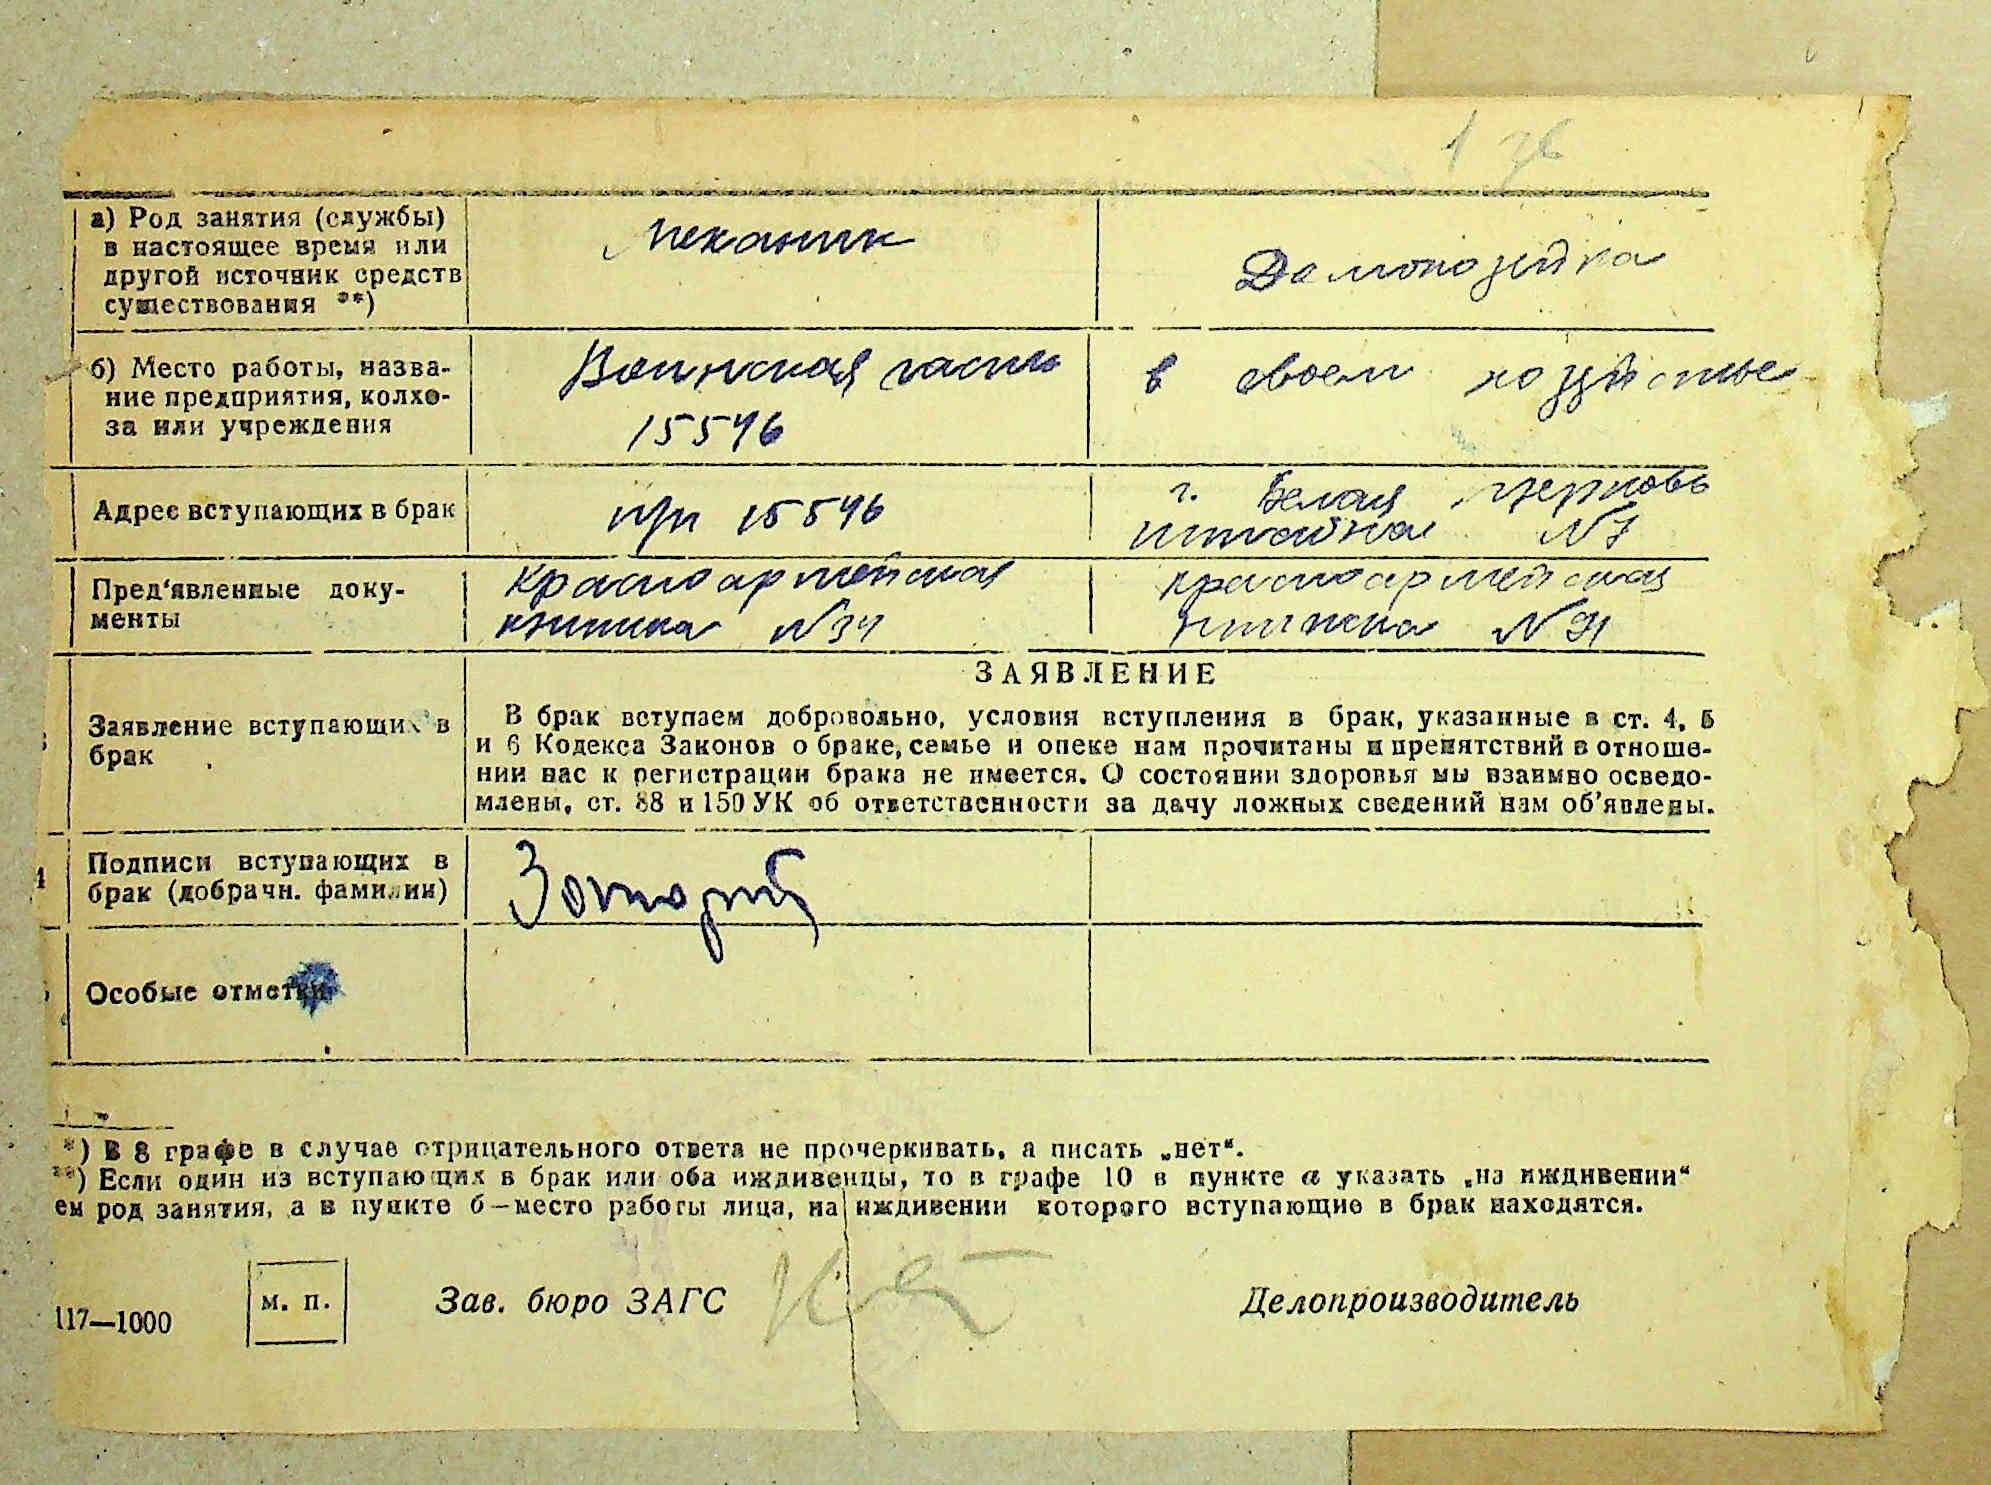 а) Род занятия (службы)
в настоящее время или
другой источник средств
существования **)
Механик
Домохозяйка
б) Место работы, назва-
ние предприятия, колхо-
за или учреждения
Воинская часть
15546
в своем хозяйстве
Адрес вступающих в брак
п/п 15546
г. Белая Церковь
N 7
Пред'явленные доку-
менты
Красноармейская
книжка N 34
Красноармейская
книжка N 91
ЗАЯВЛЕНИЕ
Заявление вступающих в
брак
В брак вступаем добровольно, условия вступления в брак, указанные в ст. 4, 5
и 6 Кодекса Законов о браке, семье и опеке нам прочитаны и препятствий в отноше-
нии нас к регистрации брака не имеется. О состоянии здоровья мы взаимно осведо-
млены, ст. 88 и 150 УК об ответственности за дачу ложных сведений нам об'явлены.
Подписи вступающих в
брак (добрачн. фамилии)
Особые отметки
*) В 8 графе в случае отрицательного ответа не прочеркивать, а писать „нет“.
**) Если один из вступающих в брак или оба иждивенцы, то в графе 10 в пункте а указать „на иждивении“
ем род занятия, а в пункте б—место работы лица, на иждивении которого вступающие в брак находятся.
117—1000
м. п.
Зав. бюро ЗАГС
Делопроизводитель